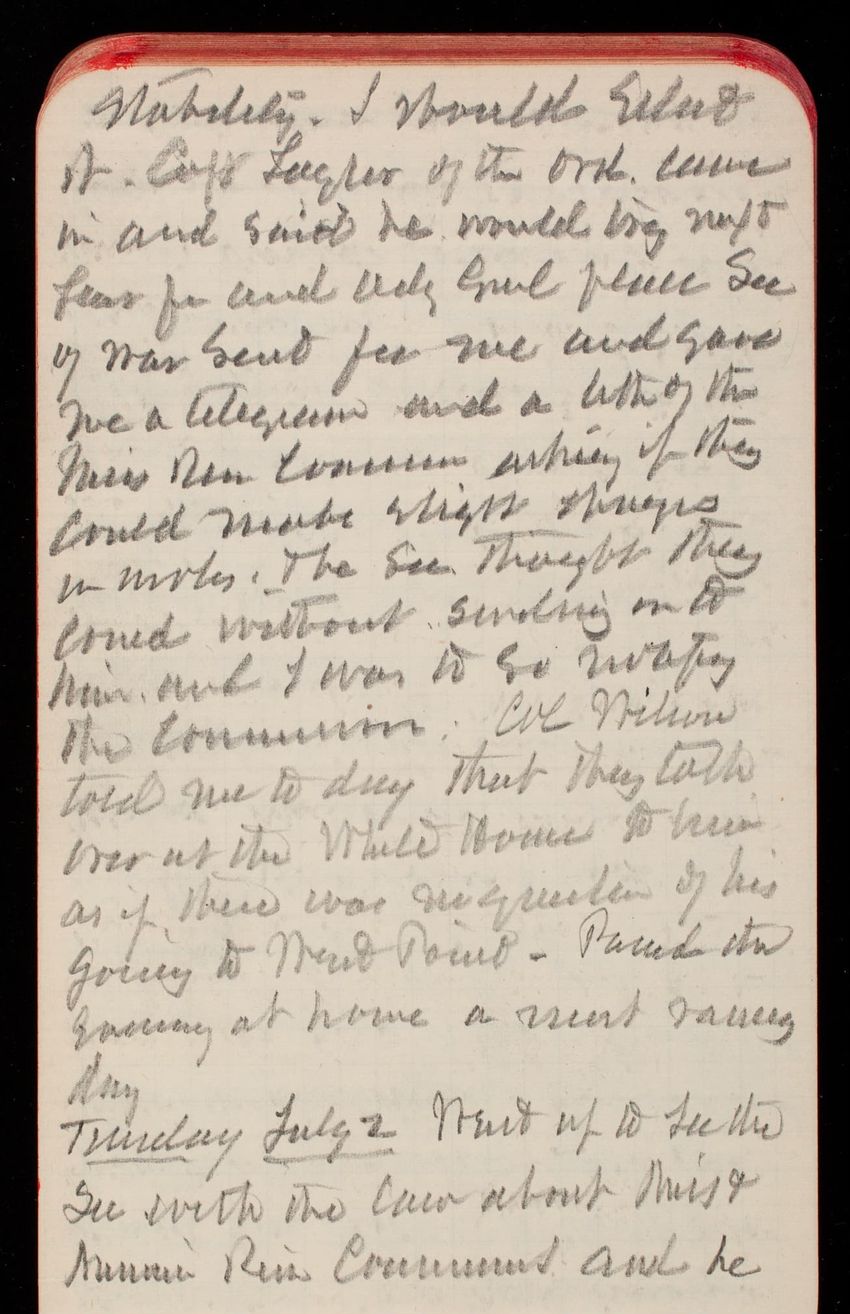 Stability. I should select
it. Capt of the Ord. came
in and said he would try next
year for and Adj Genl place Sec
of War sent for me and gave
me a telegram and a letter of the
Miss River Commission asking if they
could make slight changes
in . The Sec. thought they
could without sending on to
him. and I was to so notify
the Commission. Col Wilson
told me to day that they talk
over at the White House to him
as if there was no question of his
going to West Point - Passed the
evening at home a most rainy
day
Tuesday July 2 Went up to see the
Sec with the law about Miss &
River Commissions and he